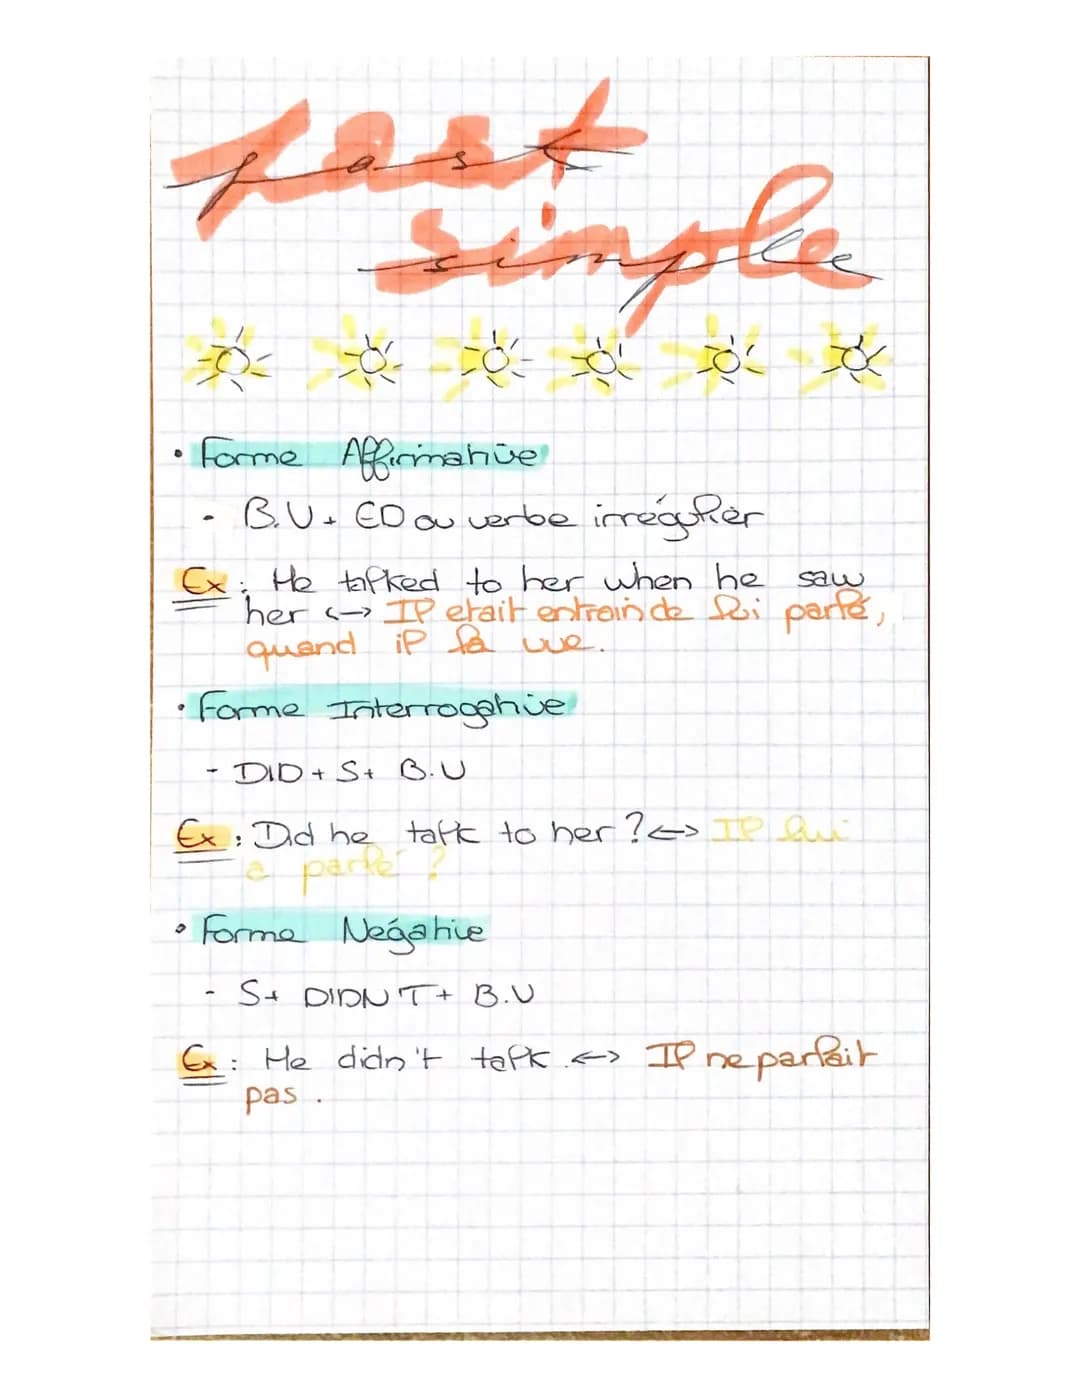 past
simple
• Forme Affirmative
- B.V + ED ou verbe irrégulier
Ex : He talked to her when he saw
her <-> Il etait entrain de lui parlé,
quand il la vue.
• Forme Interrogative
- DID + S + B.V
Ex : Did he talk to her ? <-> Il lui
a parlé ?
• Forme Négative
- S + DIDN'T + B.V
Ex : He didn't talk. <-> Il ne parlait
pas.